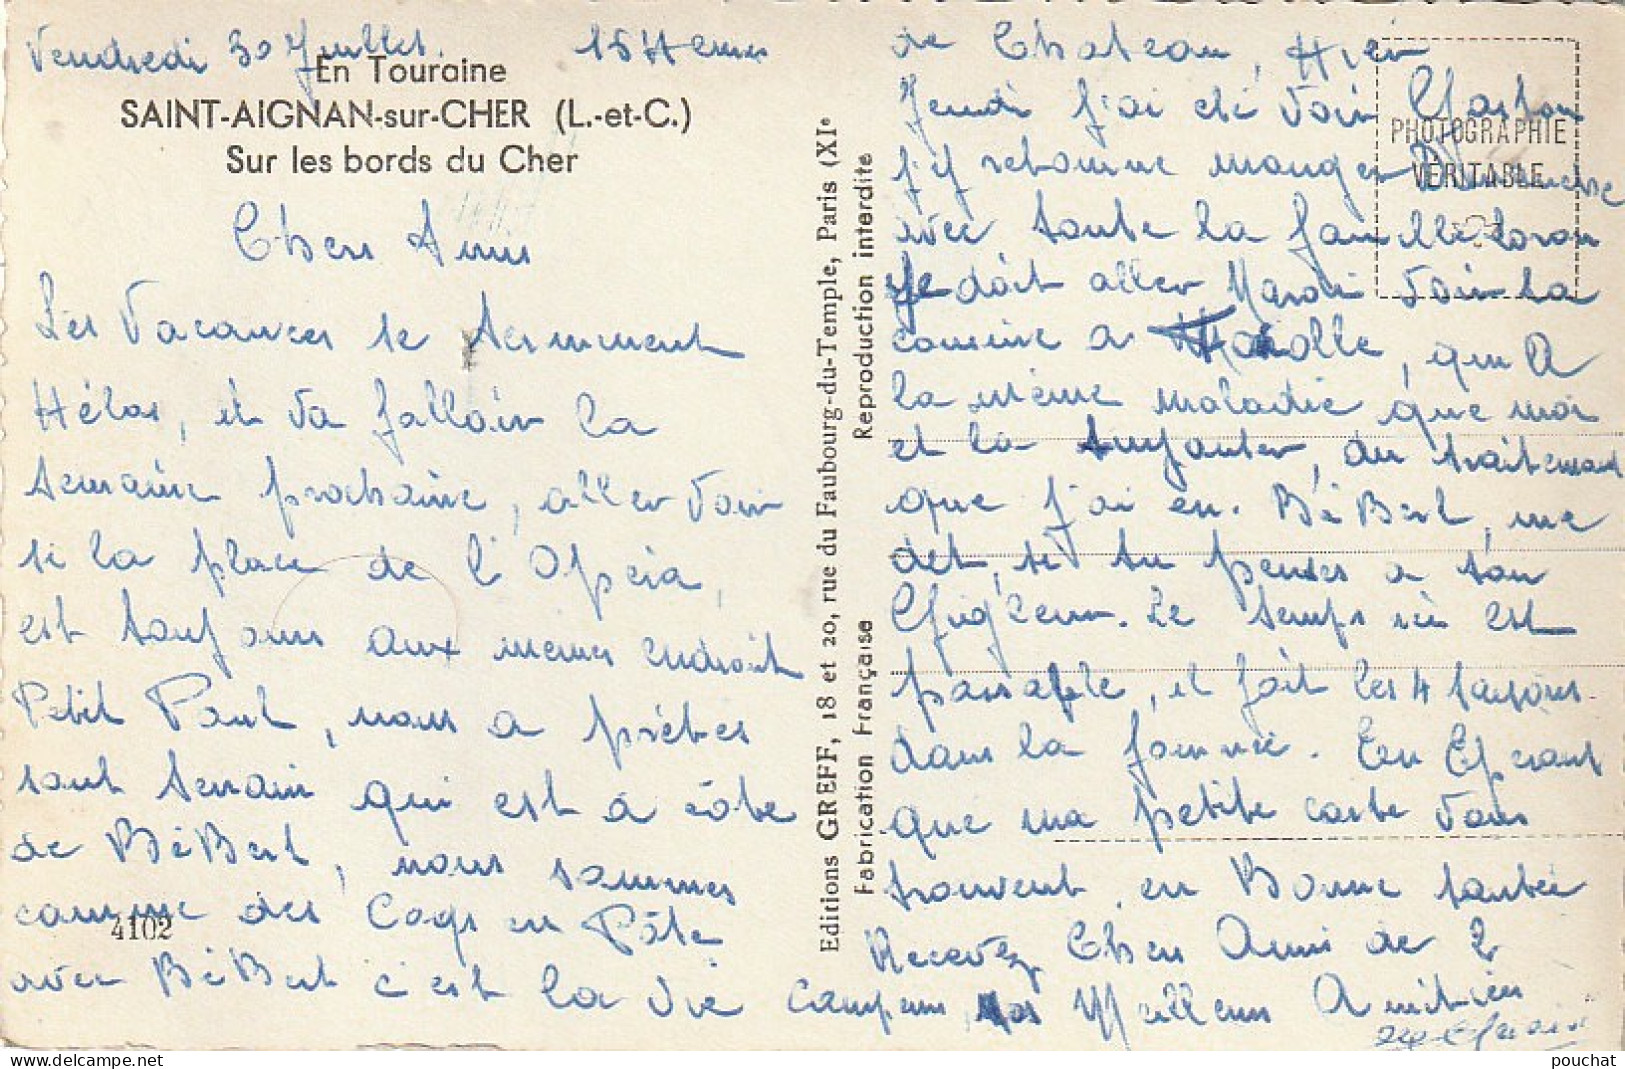 Vendredi 30 Juillet. 15 Heures
En Touraine
SAINT-AIGNAN-sur-CHER (L.-et-C.)
Sur les bords du Cher
Chers Amis
Les Vacances se terminent
Hélas, il va falloir la
semaine prochaine, aller voir
si la place de l'Opéra,
est toujours aux memes endroit
Petit Paul, nous a prétes
sont terrain qui est a côte
de BéBert, nous sommes
comme des Coqs en Pâte
avec BéBert c'est la vie
4102
Editions GREFF, 18 et 20, rue du Faubourg-du-Temple, Paris (XIe
Fabrication Française Reproduction interdite
PHOTOGRAPHIE
VÉRITABLE
de Chateau, Hier
Jeudi j'ai été voir Gaston
retourne manger Dimanche
avec toute la famille
Je doit aller Mardi voir la
cousine a, qui A
la même maladie que moi
et la, du traitement
que j'ai eu. BéBert, me
dit, si tu penses a ton
. Le temps ici est
passable, il fait les 4 saisons
dans la journée. En Esperant
que ma petite carte vous
trouvent, en Bonne santée
Recevez Chers Amis de 2
Campeurs, nos Meilleurs Amitiés
pouchat